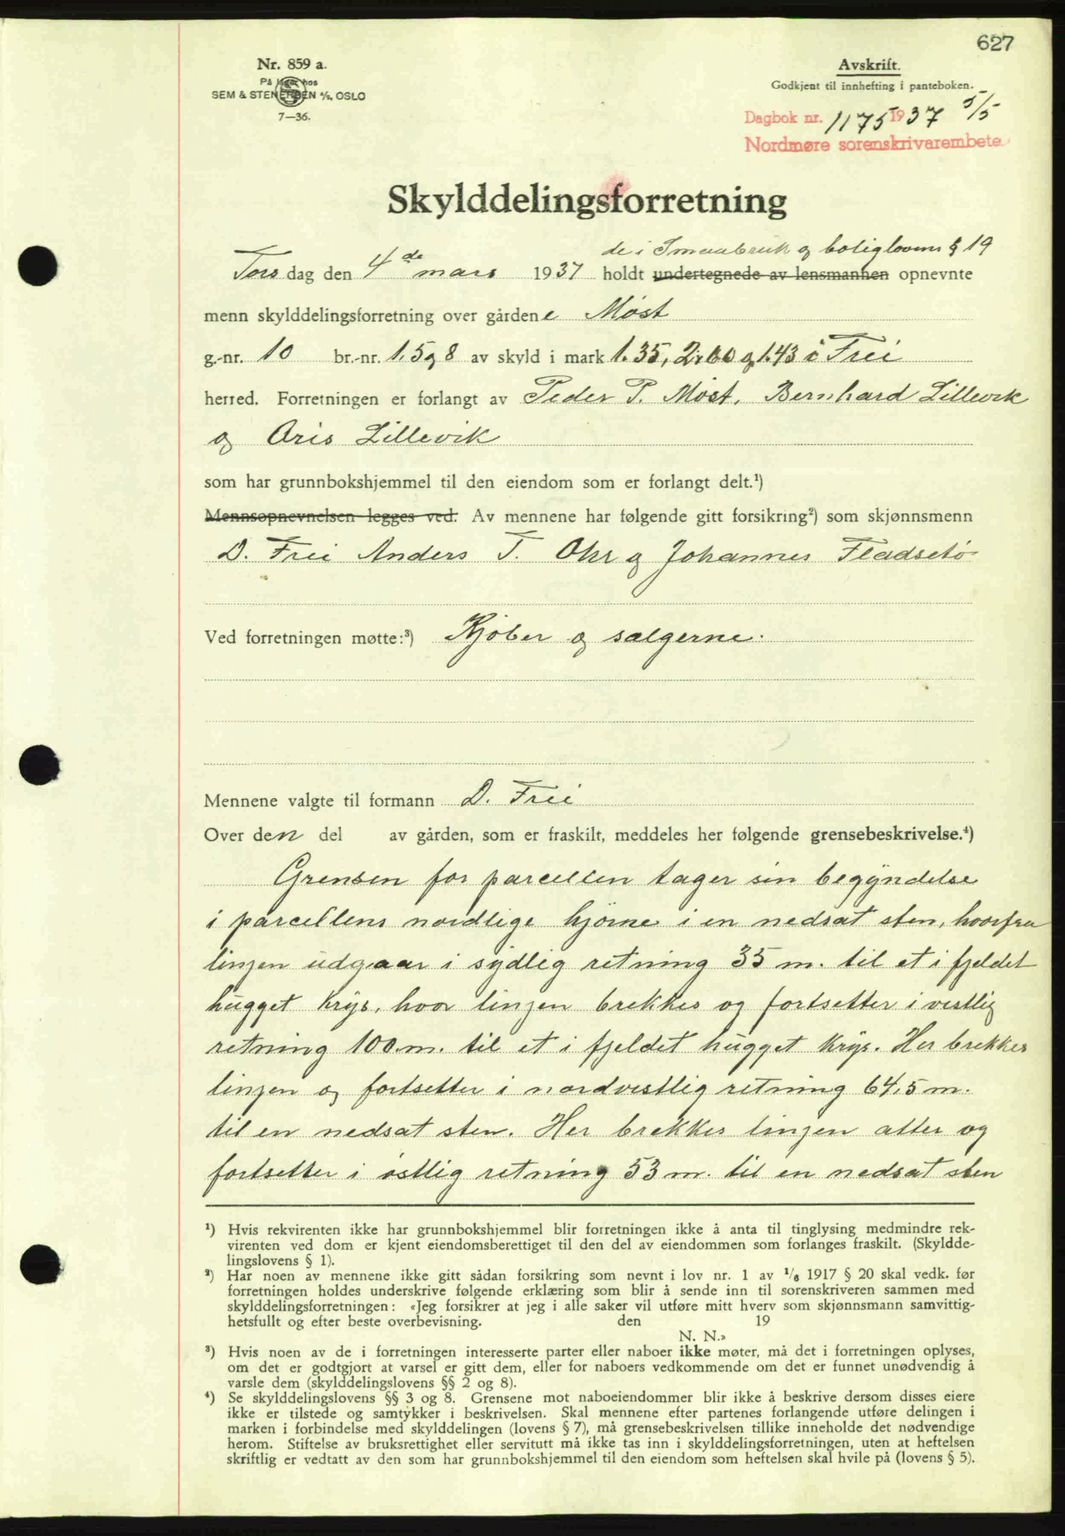 627
Nr. 859 a.
På lager hos
SEM & STENERSEN A/S, OSLO
7—36.
Avskrift.
Godkjent til innhefting i panteboken.
Dagbok nr. 1175 1937 5/5
Nordmøre sorenskrivarembete
Skylddelingsforretning
de i Smaabruk og boligloven § 19
Tors dag den 4de mars 1937 holdt undertegnede av lensmannen opnevnte
menn skylddelingsforretning over gårdene Møst
g.-nr. 10 br.-nr. 1, 5 og 8 av skyld i mark 1.35, 2.60 og 1.43 i Frei
herred. Forretningen er forlangt av Peder P. Møst, Bernhard Lillevik
og Aris Lillevik
som har grunnbokshjemmel til den eiendom som er forlangt delt.¹)
Mennsopnevnelsen legges ved. Av mennene har følgende gitt forsikring²) som skjønnsmenn
D. Frei Anders T. Ohr og Johannes Fladsetø
Ved forretningen møtte:³) Kjøber og sælgerne.
Mennene valgte til formann D. Frei
Over den del av gården, som er fraskilt, meddeles her følgende grensebeskrivelse.⁴)
Grensen for parcellen tager sin begyndelse
i parcellens nordlige hjørne i en nedsat sten, hvorfra
linjen udgaar i sydlig retning 35 m. til et i fjeldet
hugget krys, hvor linjen brekkes og fortsetter i vestlig
retning 100 m. til et i fjeldet hugget krys. Her brekkes
linjen og fortsetter i nordvestlig retning 64,5 m.
til en nedsat sten. Her brekkes linjen atter og
fortsetter i østlig retning 53 m. til en nedsat sten
¹) Hvis rekvirenten ikke har grunnbokshjemmel blir forretningen ikke å anta til tinglysing medmindre rek-
virenten ved dom er kjent eiendomsberettiget til den del av eiendommen som forlanges fraskilt. (Skyldde-
lingslovens § 1).
²) Har noen av mennene ikke gitt sådan forsikring som nevnt i lov nr. 1 av ¹/₆ 1917 § 20 skal vedk. før
forretningen holdes underskrive følgende erklæring som blir å sende inn til sorenskriveren sammen med
skylddelingsforretningen: «Jeg forsikrer at jeg i alle saker vil utføre mitt hverv som skjønnsmann samvittig-
hetsfullt og efter beste overbevisning. den 19
N. N.»
³) Hvis noen av de i forretningen interesserte parter eller naboer ikke møter, må det i forretningen oplyses,
om det er godtgjort at varsel er gitt dem, eller for naboers vedkommende om det er funnet unødvendig å
varsle dem (skylddelingslovens §§ 2 og 8).
⁴) Se skylddelingslovens §§ 3 og 8. Grensene mot naboeiendommer blir ikke å beskrive dersom disses eiere
ikke er tilstede og samtykker i beskrivelsen. Skal mennene efter partenes forlangende utføre delingen i
marken i forbindelse med skylddelingen (lovens § 7), må grensebeskrivelsen tillike inneholde det nødvendige
herom. Stiftelse av bruksrettighet eller servitutt må ikke tas inn i skylddelingsforretningen, uten at heftelsen
skriftlig er vedtatt av den som har grunnbokshjemmel til den eiendom som heftelsen skal hvile på (lovens § 5).